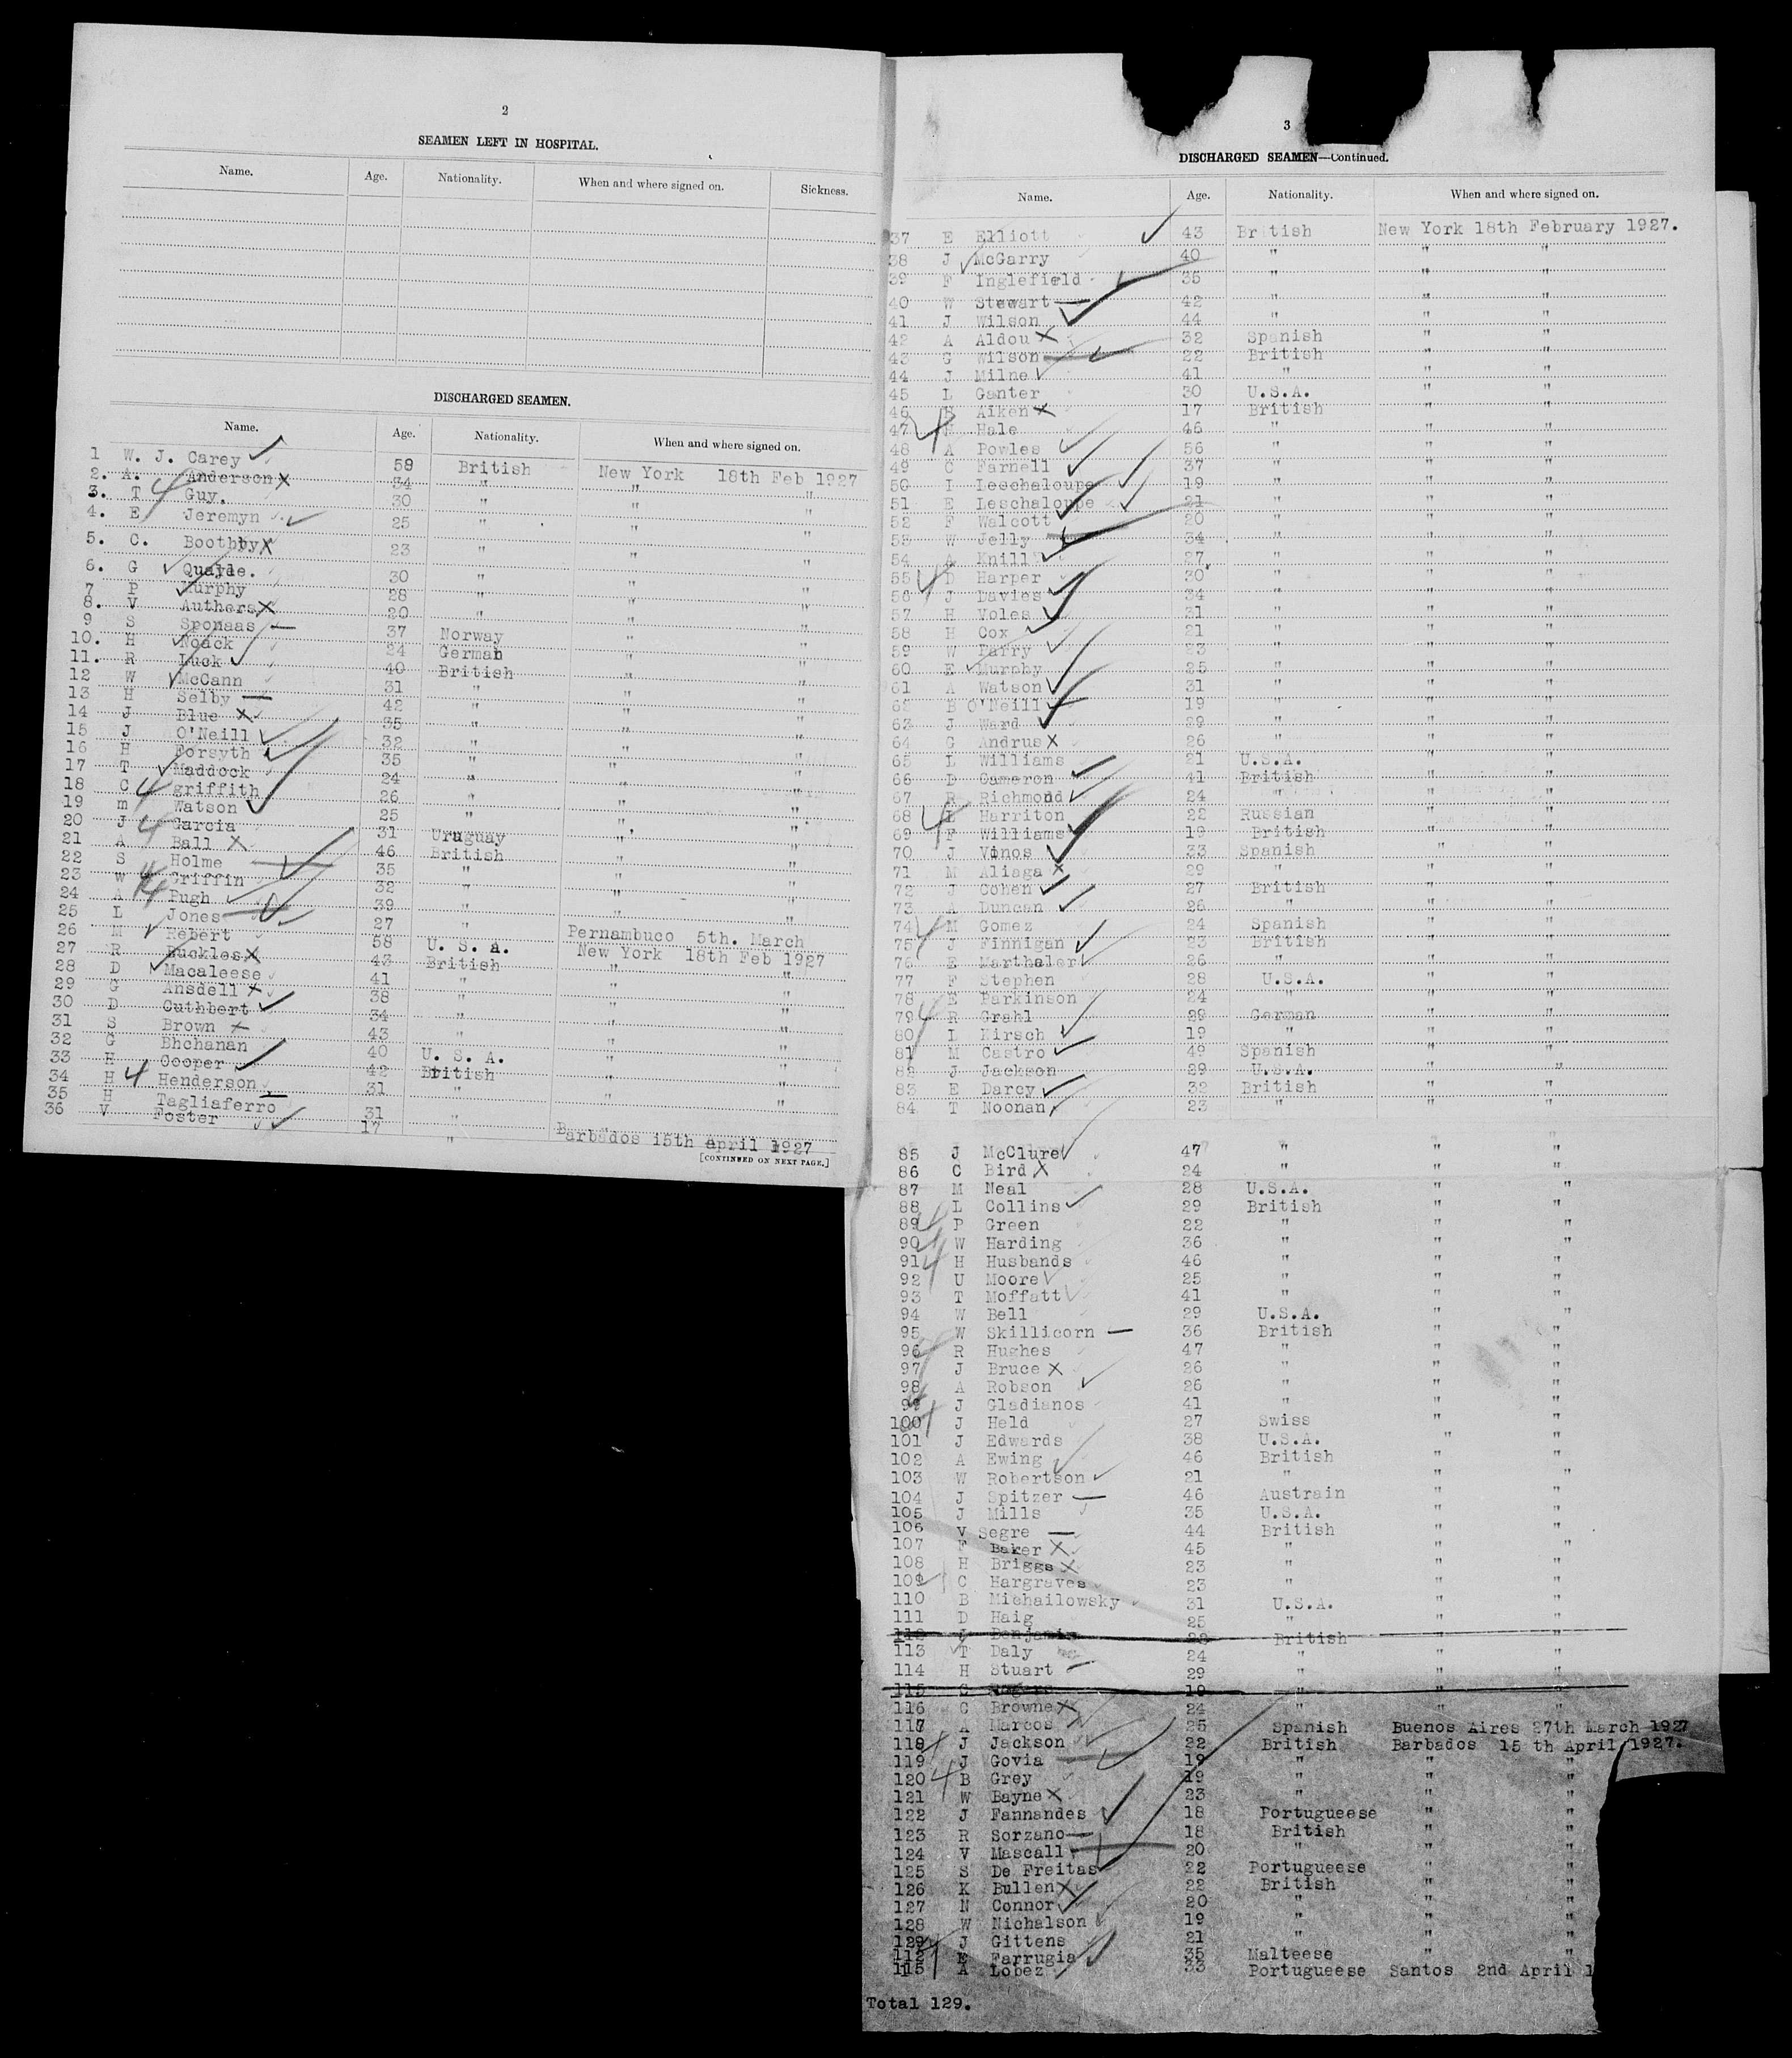 2
SEAMEN LEFT IN HOSPITAL.
Name. Age. Nationality. When and where signed on. Sickness.
DISCHARGED SEAMEN.
Name. Age. Nationality. When and where signed on.
1 W. J. Carey 59 British New York 18th Feb 1927
2. A. Anderson 34 " " "
3. T Guy. 30 " " "
4. E Jeremyn 25 " " "
5. C. Boothby 23 " " "
6. G Quayle. 30 " " "
7 P Murphy 28 " " "
8. V Authers 20 " " "
9 S Sponaas 37 Norway " "
10. H Noack 24 German " "
11. R Luck 40 British " "
12 W McCann 31 " " "
13 H Selby 42 " " "
14 J Blue 35 " " "
15 J O'Neill 32 " " "
16 H Forsyth 35 " " "
17 T Maddock 24 " " "
18 C griffith 26 " " "
19 m Watson 25 " " "
20 J Garcia 31 Uruguay " "
21 A Ball 46 British " "
22 S Holme 35 " " "
23 W Griffin 32 " " "
24 A Pugh 39 " " "
25 L Jones 27 " " "
26 M Rebert 58 U. S. A. Pernambuco 5th. March
27 R Buckles 43 British New York 18th Feb 1927
28 D Macaleese 41 " " "
29 G Ansdell 38 " " "
30 D Cuthbert 34 " " "
31 S Brown 43 " " "
32 G Bhchanan 40 U. S. A. " "
33 H Cooper 42 British " "
34 H Henderson 31 " " "
35 H Tagliaferro 31 " " "
36 V Foster 17 " Barbados 15th April 1927
[CONTINUED ON NEXT PAGE.]
3
DISCHARGED SEAMEN—Continued.
Name. Age. Nationality. When and where signed on.
37 E Elliott 43 British New York 18th February 1927.
38 J McGarry 40 " " "
39 F Inglefield 35 " " "
40 W Stewart 42 " " "
41 J Wilson 44 " " "
42 A Aldou 32 Spanish " "
43 G Wilson 22 British " "
44 J Milne 41 " " "
45 L Ganter 30 U.S.A. " "
46 Aiken 17 British " "
47 Hale 46 " " "
48 A Powles 56 " " "
49 C Farnell 37 " " "
50 I Leschaloupe 19 " " "
51 E Leschaloupe 21 " " "
52 F Walcott 20 " " "
53 W Jelly 34 " " "
54 A Knill 27 " " "
55 D Harper 30 " " "
56 J Davies 34 " " "
57 H Voles 31 " " "
58 H Cox 21 " " "
59 W Parry 23 " " "
60 E Murphy 25 " " "
61 A Watson 31 " " "
62 B O'Neill 19 " " "
63 J Ward 29 " " "
64 G Andrus 26 " " "
65 L Williams 21 U.S.A. " "
66 D Cameron 41 British " "
67 R Richmond 24 " " "
68 L Harriton 22 Russian " "
69 F Williams 19 British " "
70 J Vinos 33 Spanish " "
71 M Aliaga 29 " " "
72 J Cohen 27 British " "
73 A Duncan 26 " " "
74 M Gomez 24 Spanish " "
75 J Finnigan 23 British " "
76 E Marthaler 26 " " "
77 F Stephen 28 U.S.A. " "
78 E Parkinson 24 " " "
79 R Grahl 29 German " "
80 L Kirsch 19 " " "
81 M Castro 49 Spanish " "
82 J Jackson 29 U.S.A. " "
83 E Darcy 32 British " "
84 T Noonan 23 " " "
85 J McClure 47 " " "
86 C Bird 24 " " "
87 M Neal 28 U.S.A. " "
88 L Collins 29 British " "
89 P Green 22 " " "
90 W Harding 36 " " "
91 H Husbands 46 " " "
92 U Moore 25 " " "
93 T Moffatt 41 " " "
94 W Bell 29 U.S.A. " "
95 W Skillicorn 36 British " "
96 R Hughes 47 " " "
97 J Bruce 26 " " "
98 A Robson 26 " " "
99 J Gladianos 41 " " "
100 J Held 27 Swiss " "
101 J Edwards 38 U.S.A. " "
102 A Ewing 46 British " "
103 W Robertson 21 " " "
104 J Spitzer 46 Austrain " "
105 J Mills 35 U.S.A. " "
106 V Segre 44 British " "
107 F Baker 45 " " "
108 H Briggs 23 " " "
109 C Hargraves 23 " " "
110 B Michailowsky 31 U.S.A. " "
111 D Haig 25 " " "
112 J Benjamin 23 British " "
113 T Daly 24 " " "
114 H Stuart 29 " " "
115 C 19 " " "
116 C Browne 24 " " "
117 A Marcos 25 Spanish Buenos Aires 27th March 1927
118 J Jackson 22 British Barbados 15 th April 1927.
119 J Govia 19 " " "
120 B Grey 19 " " "
121 W Bayne 23 " " "
122 J Fannandes 18 Portugueese " "
123 R Sorzano 18 British " "
124 V Mascall 20 " " "
125 S De Freitas 22 Portugueese " "
126 K Bullen 22 British " "
127 N Connor 20 " " "
128 W Nichalson 19 " " "
129 J Gittens 21 " " "
112 E Farrugia 35 Malteese " "
115 A Lopez 33 Portugueese Santos 2nd April 1
Total 129.